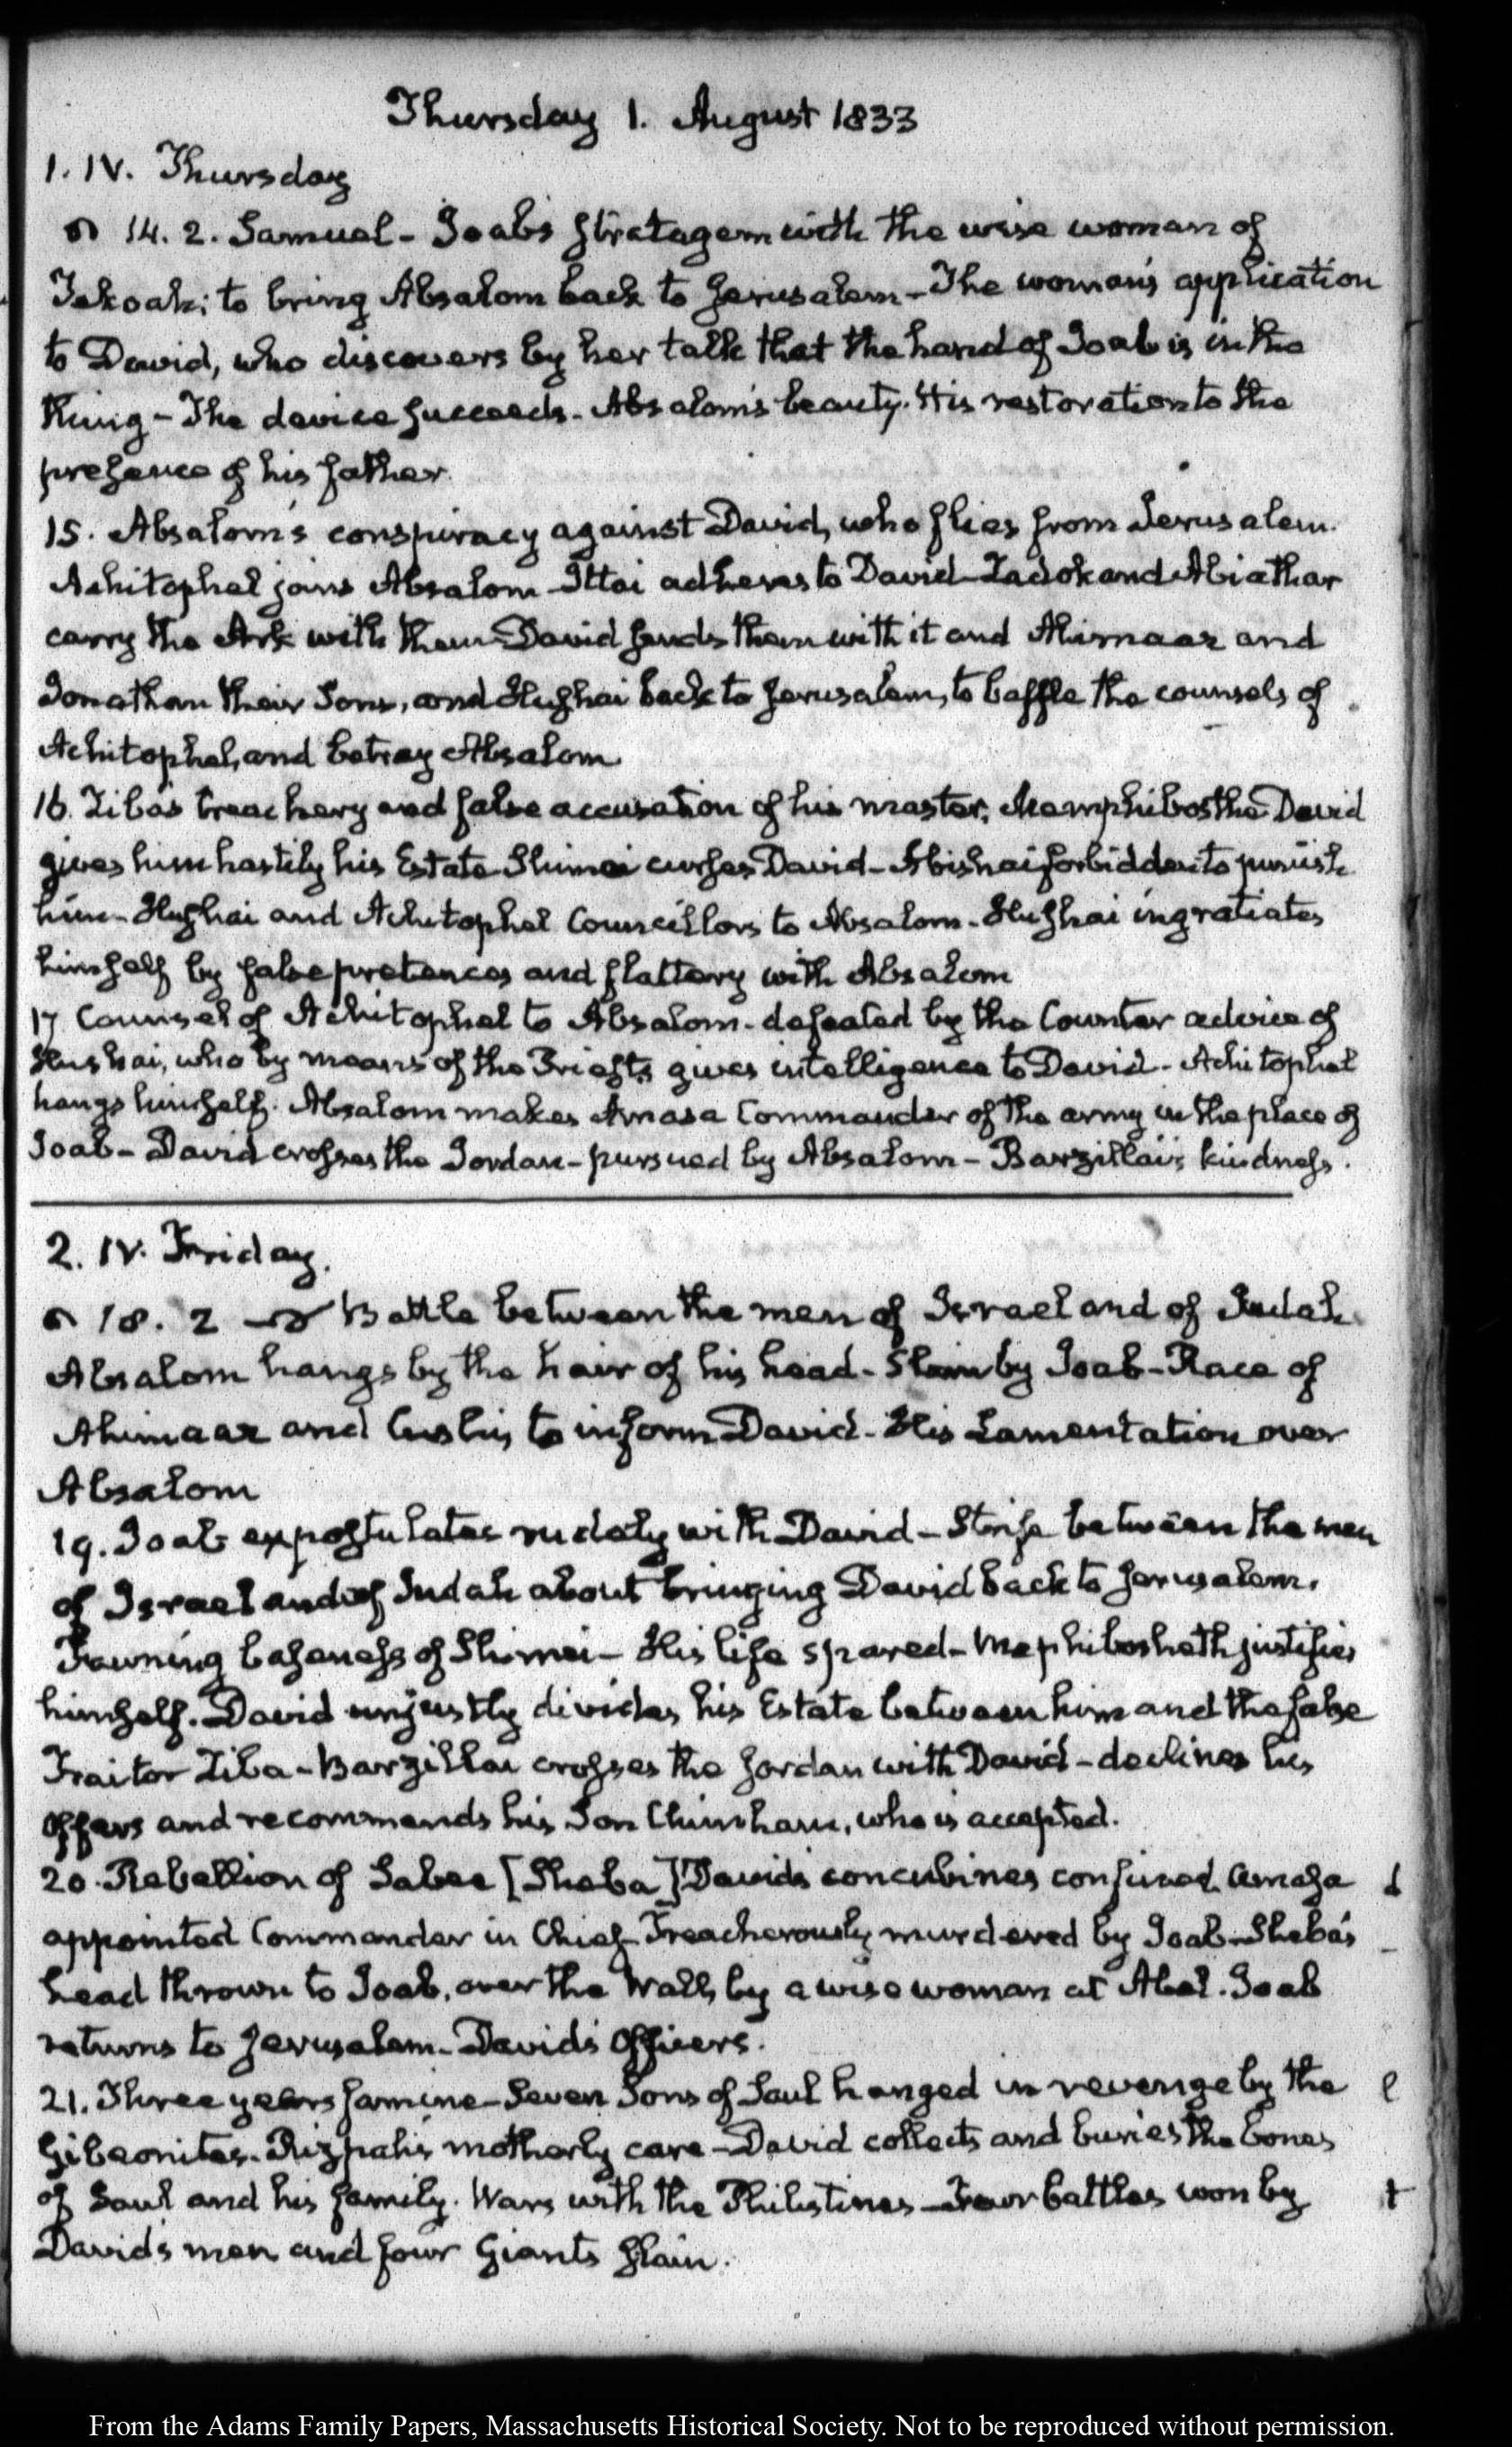 Thursday 1. August 1833
1. IV. Thursday
14. 2. Samuel - Joab's stratagem with the wise woman of
Tekoah; to bring Absalom back to Jerusalem - The woman's application
to David, who discovers by her talk that the hand of Joab is in the
thing - The device succeeds - Absalom's beauty. His restoration to the
presence of his father.
15. Absalom's conspiracy against David, who flies from Jerusalem.
Achitophel joins Absalom - Ittai adheres to David - Zadok and Abiathar
carry the Ark with them - David sends them with it and Ahimaaz and
Jonathan their Sons, and Hushai back to Jerusalem, to baffle the counsels of
Achitophel, and betray Absalom
16. Ziba's treachery and false accusation of his master, David
gives him hastily his Estate - Shimei curses David - Abishai forbidden to punish
him - Hushai and Achitophel Councillors to Absalom - Hushai ingratiates
himself by false pretences and flattery with Absalom
17 Counsel of Achitophel to Absalom - defeated by the Counter advice of
Hushai, who by means of the Priests gives intelligence to David - Achitophel
hangs himself. Absalom makes Amasa Commander of the army in the place of
Joab - David crosses the Jordan - pursued by Absalom - Barzillai's kindness.
2. IV. Friday.
18. 2 Battle between the men of Israel and of Judah
Absalom hangs by the hair of his head - Slain by Joab - Race of
Ahimaaz and Cushi, to inform David - His Lamentation over
Absalom
19. Joab expostulates rudely with David - Strife between the men
of Israel and of Judah about bringing David back to Jerusalem.
Fawning baseness of Shimei - His life spared - Mephibosheth justifies
himself. David unjustly divides his Estate between him and the false
Traitor Ziba - Barzillai crosses the Jordan with David - declines his
offers and recommends his Son Chimham, who is accepted.
20. Rebellion of Sabee [Sheba] David's concubines confined Amasa
appointed Commander in Chief - Treacherously murdered by Joab - Sheba's
head thrown to Joab, over the Wall, by a wise woman at Abel. Joab
returns to Jerusalem - David's Officers.
21. Three years famine - Seven Sons of Saul hanged in revenge by the
Gibeonites - Rizpah's motherly care - David collects and buries the bones
of Saul and his family. Wars with the Philistines - Four battles won by
David's men and four Giants slain.
From the Adams Family Papers, Massachusetts Historical Society. Not to be reproduced without permission.